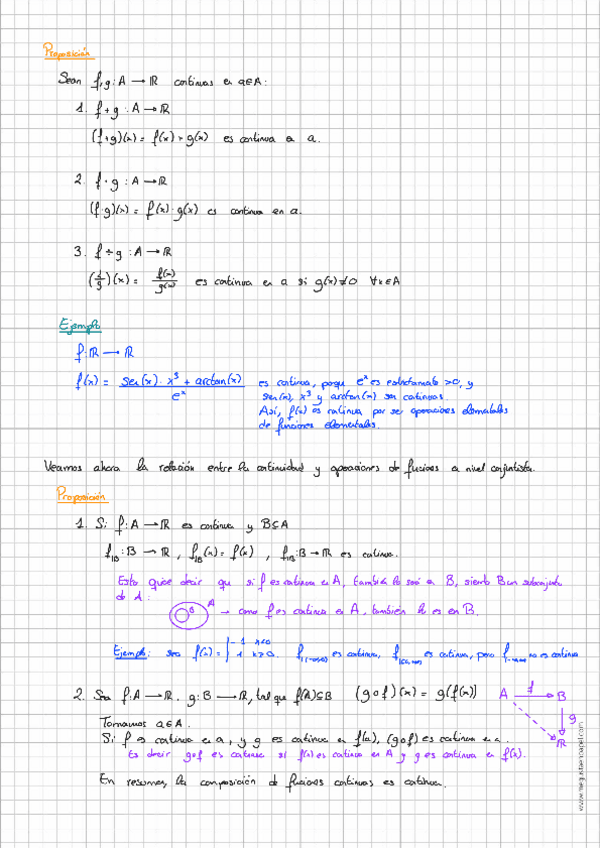 Proposición
Sean f,g: A → ℝ continuas en a∈A:
1. f+g : A → ℝ
(f+g)(x) = f(x)+g(x) es continua en a.
2. f·g : A → ℝ
(f·g)(x) = f(x)·g(x) es continua en a.
3. f÷g : A → ℝ
(f/g)(x) = f(x)/g(x) es continua en a si g(x)≠0 ∀x∈A
Ejemplo
f: ℝ → ℝ
f(x) = (sen(x)·x³ + arctan(x))/eˣ es continua, porque eˣ es estrictamente >0, y
sen(x), x³ y arctan(x) son continuas.
Así, f(x) es continua por ser operaciones elementales
de funciones elementales.
Veamos ahora la relación entre la continuidad y operaciones de funciones a nivel conjuntista.
Proposición
1. Si f: A → ℝ es continua y B⊆A
f|B : B → ℝ, f|B(x) = f(x), f|B : B → ℝ es continua.
Esto quiere decir que si f es continua en A, también lo será en B, siendo B un subconjunto
de A:
B A → como f es continua en A, también lo es en B.
Ejemplo: sea f(x) = { -1 x<0
1 x≥0. es continua, es continua, pero no es continua
2. Sea f: A → ℝ. g: B → ℝ, tal que f(A)⊆B (g∘f)(x) = g(f(x)) A f B
g
ℝ
Tomamos a∈A.
Si f es continua en a, y g es continua en f(a), (g∘f) es continua en a.
Es decir g∘f es continua si f(x) es continua en A y g es continua en f(x).
En resumen, la composición de funciones continuas es continua.